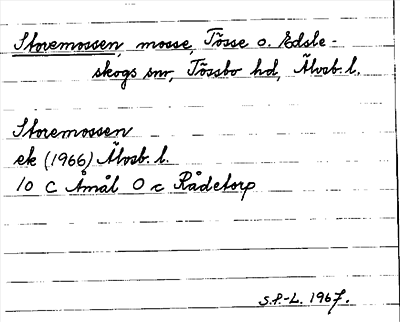 Storemossen, mosse, Tösse o. Edsle-
skogs snr, Tössbo hd, Älvsb. l.
Storemossen
ek (1966) Älvsb. l.
10 C Åmål O c Rådetorp
S.P.-L. 1967.